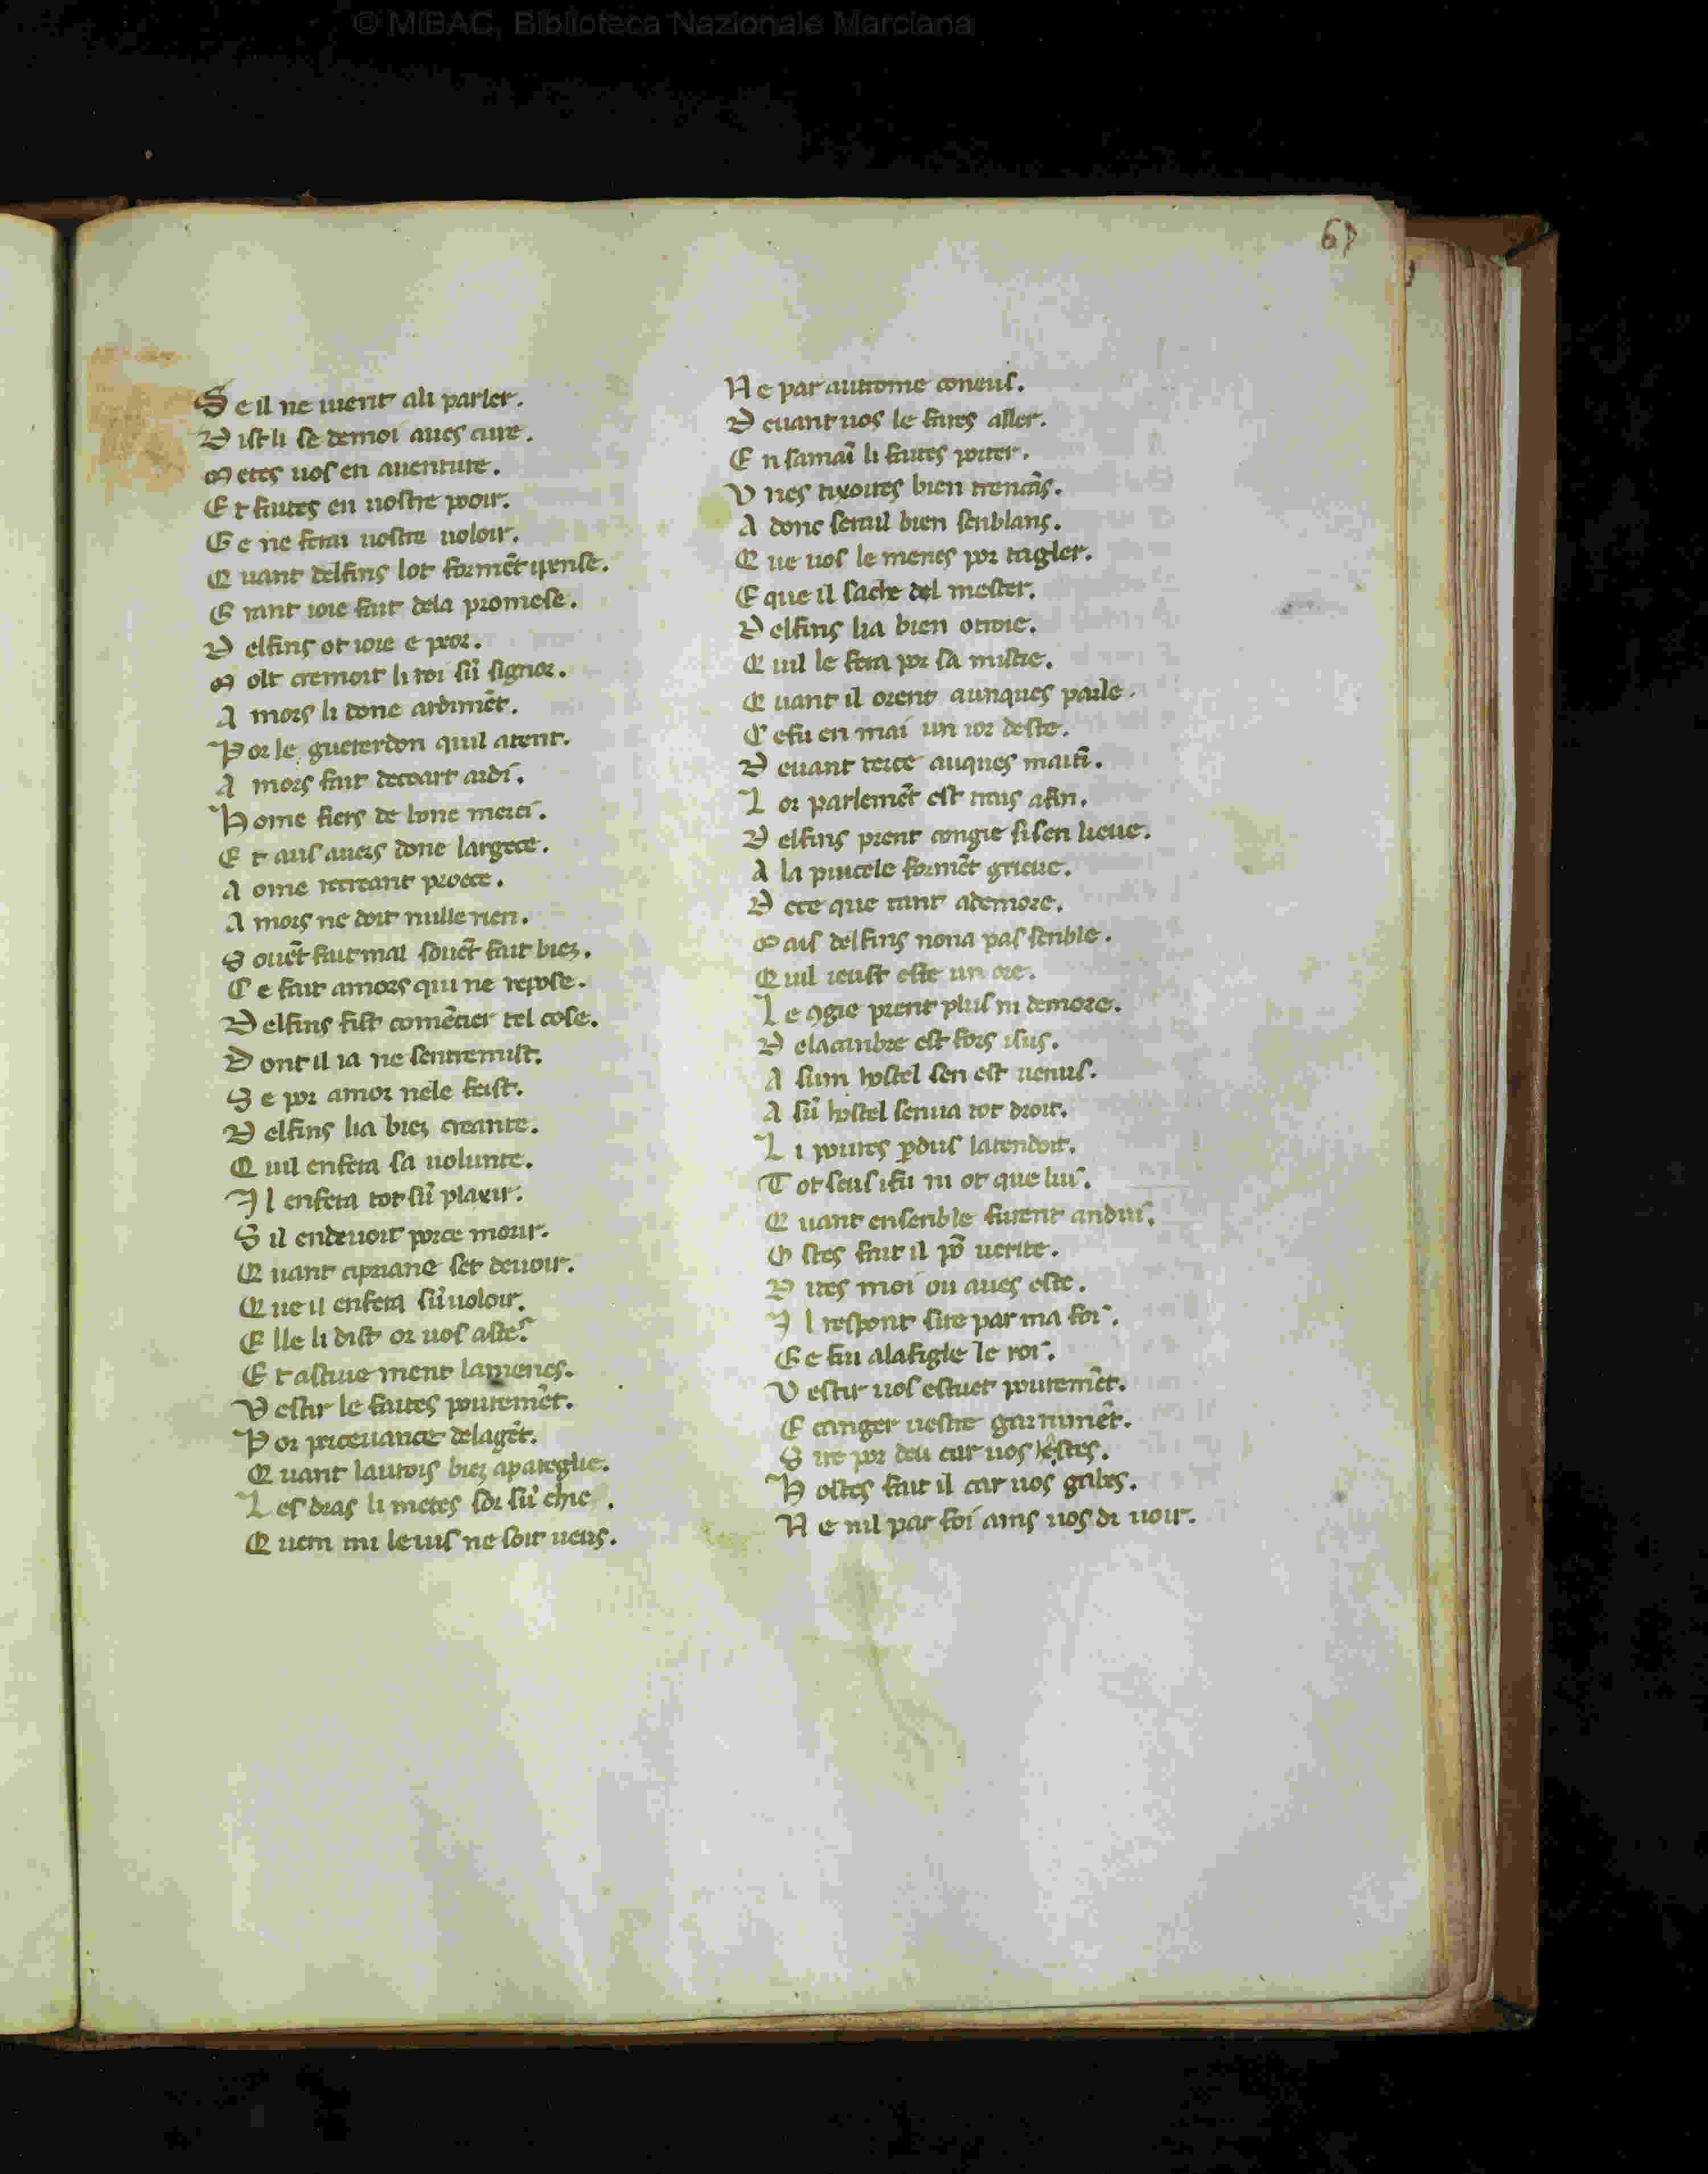 © MiBAC, Biblioteca Nazionale Marciana
67
S e il ne uient ali parler.
D ist li se demoi aues cure.
M etes uos en auenture.
E t faites en uostre pooir.
G e ne ferai uostre uoloir.
Q uant delfins lot formẽt ipense.
G rant ioie fait dela promese.
D elfins ot ioie e peor.
M olt cremoit li roi sũ signor.
A mors li done ardimẽt.
P or le guererdon quil atent.
A mors fait decoart ardi.
H ome fiers de bone merci.
E t aus auers done largece.
A ome recreant proece.
A mors ne doit nulle rien.
S ouẽt fait mal souẽt fait biez.
C e fait amors qui ne repose.
D elfins fist comẽcier tel cose.
D ont il ia ne sentremist.
S e por amor nele feist.
D elfins lia biez creante.
Q uil enfera sa uolunte.
I l enfera tot sũ plaxir.
S il endeuoit porce morir.
Q uant cipriane set deuoir.
Q ue il enfera sũ uoloir.
E lle li dist or uos astes.
E t astiue ment lamenes.
V estir le faites pouremẽt.
P or perceuance delagẽt.
Q uant laurois biez apareglie.
L es dras li metes sor sũ chie.
Q uem mi le uis ne soit ueus.
N e par autrome coneus.
D euant uos le faites aller.
E n samaĩ li faites porter.
V nes tixoires bien trencãs.
A donc serail bien senblans.
Q ue uos le menes por tagler.
E que il sache del mester.
D elfins lia bien otroie.
Q uil le fera por sa mistie.
Q uant il orent auques parle.
C efu en mai un ior deste.
D euant terce auques matĩ.
L or parlemẽt est trais afin.
D elfins prent congie sisen lieue.
A la pucele formẽt grieue.
D ece que tant ademore.
M ais delfins nona pas senble.
Q uil ieust este un ore.
L e ꝯgie prent plus ni demore.
D elacanbre est fors isus.
A sum hostel sen est uenus.
A sũ hostel senua tot droit.
L i poures ꝑdus latendoit.
T ot seus ifu ni ot que lui.
Q uant ensenble furent andui.
O stes fait il põ uerite.
D ites moi ou aues este.
I l respont sire par ma foi.
G e fui alafigle le roi.
V estir uos estuet pouremẽt.
E canger uestre garnimẽt.
S ire por deu car uos hestes.
H ostes fait il car uos gabes.
N e nil par foi ains uos di uoir.